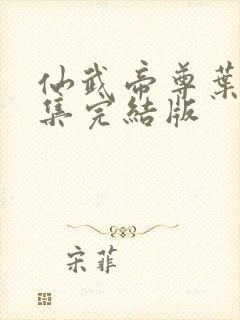 仙武帝尊葉
集完結版
宋菲